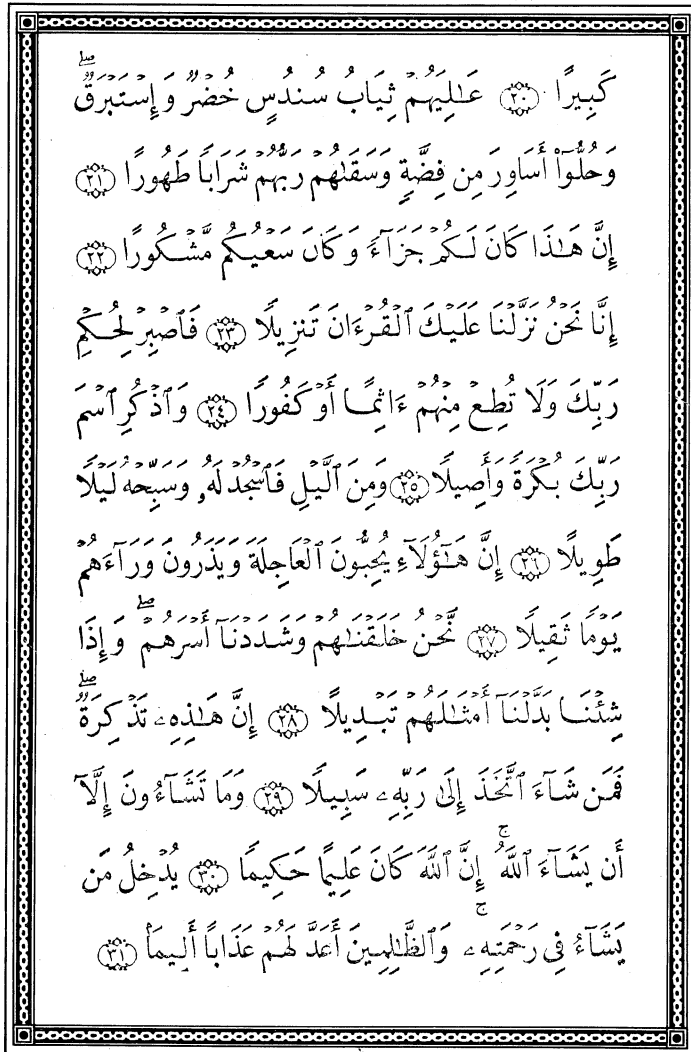 كَبِيرًا ٢٠ عَٰلِيَهُمْ ثِيَابُ سُندُسٍ خُضْرٌ وَإِسْتَبْرَقٌ ۖ
وَحُلُّوٓا۟ أَسَاوِرَ مِن فِضَّةٍ وَسَقَىٰهُمْ رَبُّهُمْ شَرَابًا طَهُورًا ٢١
إِنَّ هَٰذَا كَانَ لَكُمْ جَزَآءً وَكَانَ سَعْيُكُم مَّشْكُورًا ٢٢
إِنَّا نَحْنُ نَزَّلْنَا عَلَيْكَ ٱلْقُرْءَانَ تَنزِيلًا ٢٣ فَٱصْبِرْ لِحُكْمِ
رَبِّكَ وَلَا تُطِعْ مِنْهُمْ ءَاثِمًا أَوْ كَفُورًا ٢٤ وَٱذْكُرِ ٱسْمَ
رَبِّكَ بُكْرَةً وَأَصِيلًا ٢٥ وَمِنَ ٱلَّيْلِ فَٱسْجُدْ لَهُۥ وَسَبِّحْهُ لَيْلًا
طَوِيلًا ٢٦ إِنَّ هَٰٓؤُلَآءِ يُحِبُّونَ ٱلْعَاجِلَةَ وَيَذَرُونَ وَرَآءَهُمْ
يَوْمًا ثَقِيلًا ٢٧ نَّحْنُ خَلَقْنَٰهُمْ وَشَدَدْنَآ أَسْرَهُمْ ۖ وَإِذَا
شِئْنَا بَدَّلْنَآ أَمْثَٰلَهُمْ تَبْدِيلًا ٢٨ إِنَّ هَٰذِهِۦ تَذْكِرَةٌ ۖ
فَمَن شَآءَ ٱتَّخَذَ إِلَىٰ رَبِّهِۦ سَبِيلًا ٢٩ وَمَا تَشَآءُونَ إِلَّآ
أَن يَشَآءَ ٱللَّهُ ۚ إِنَّ ٱللَّهَ كَانَ عَلِيمًا حَكِيمًا ٣٠ يُدْخِلُ مَن
يَشَآءُ فِى رَحْمَتِهِۦ ۚ وَٱلظَّٰلِمِينَ أَعَدَّ لَهُمْ عَذَابًا أَلِيمًۢا ٣١